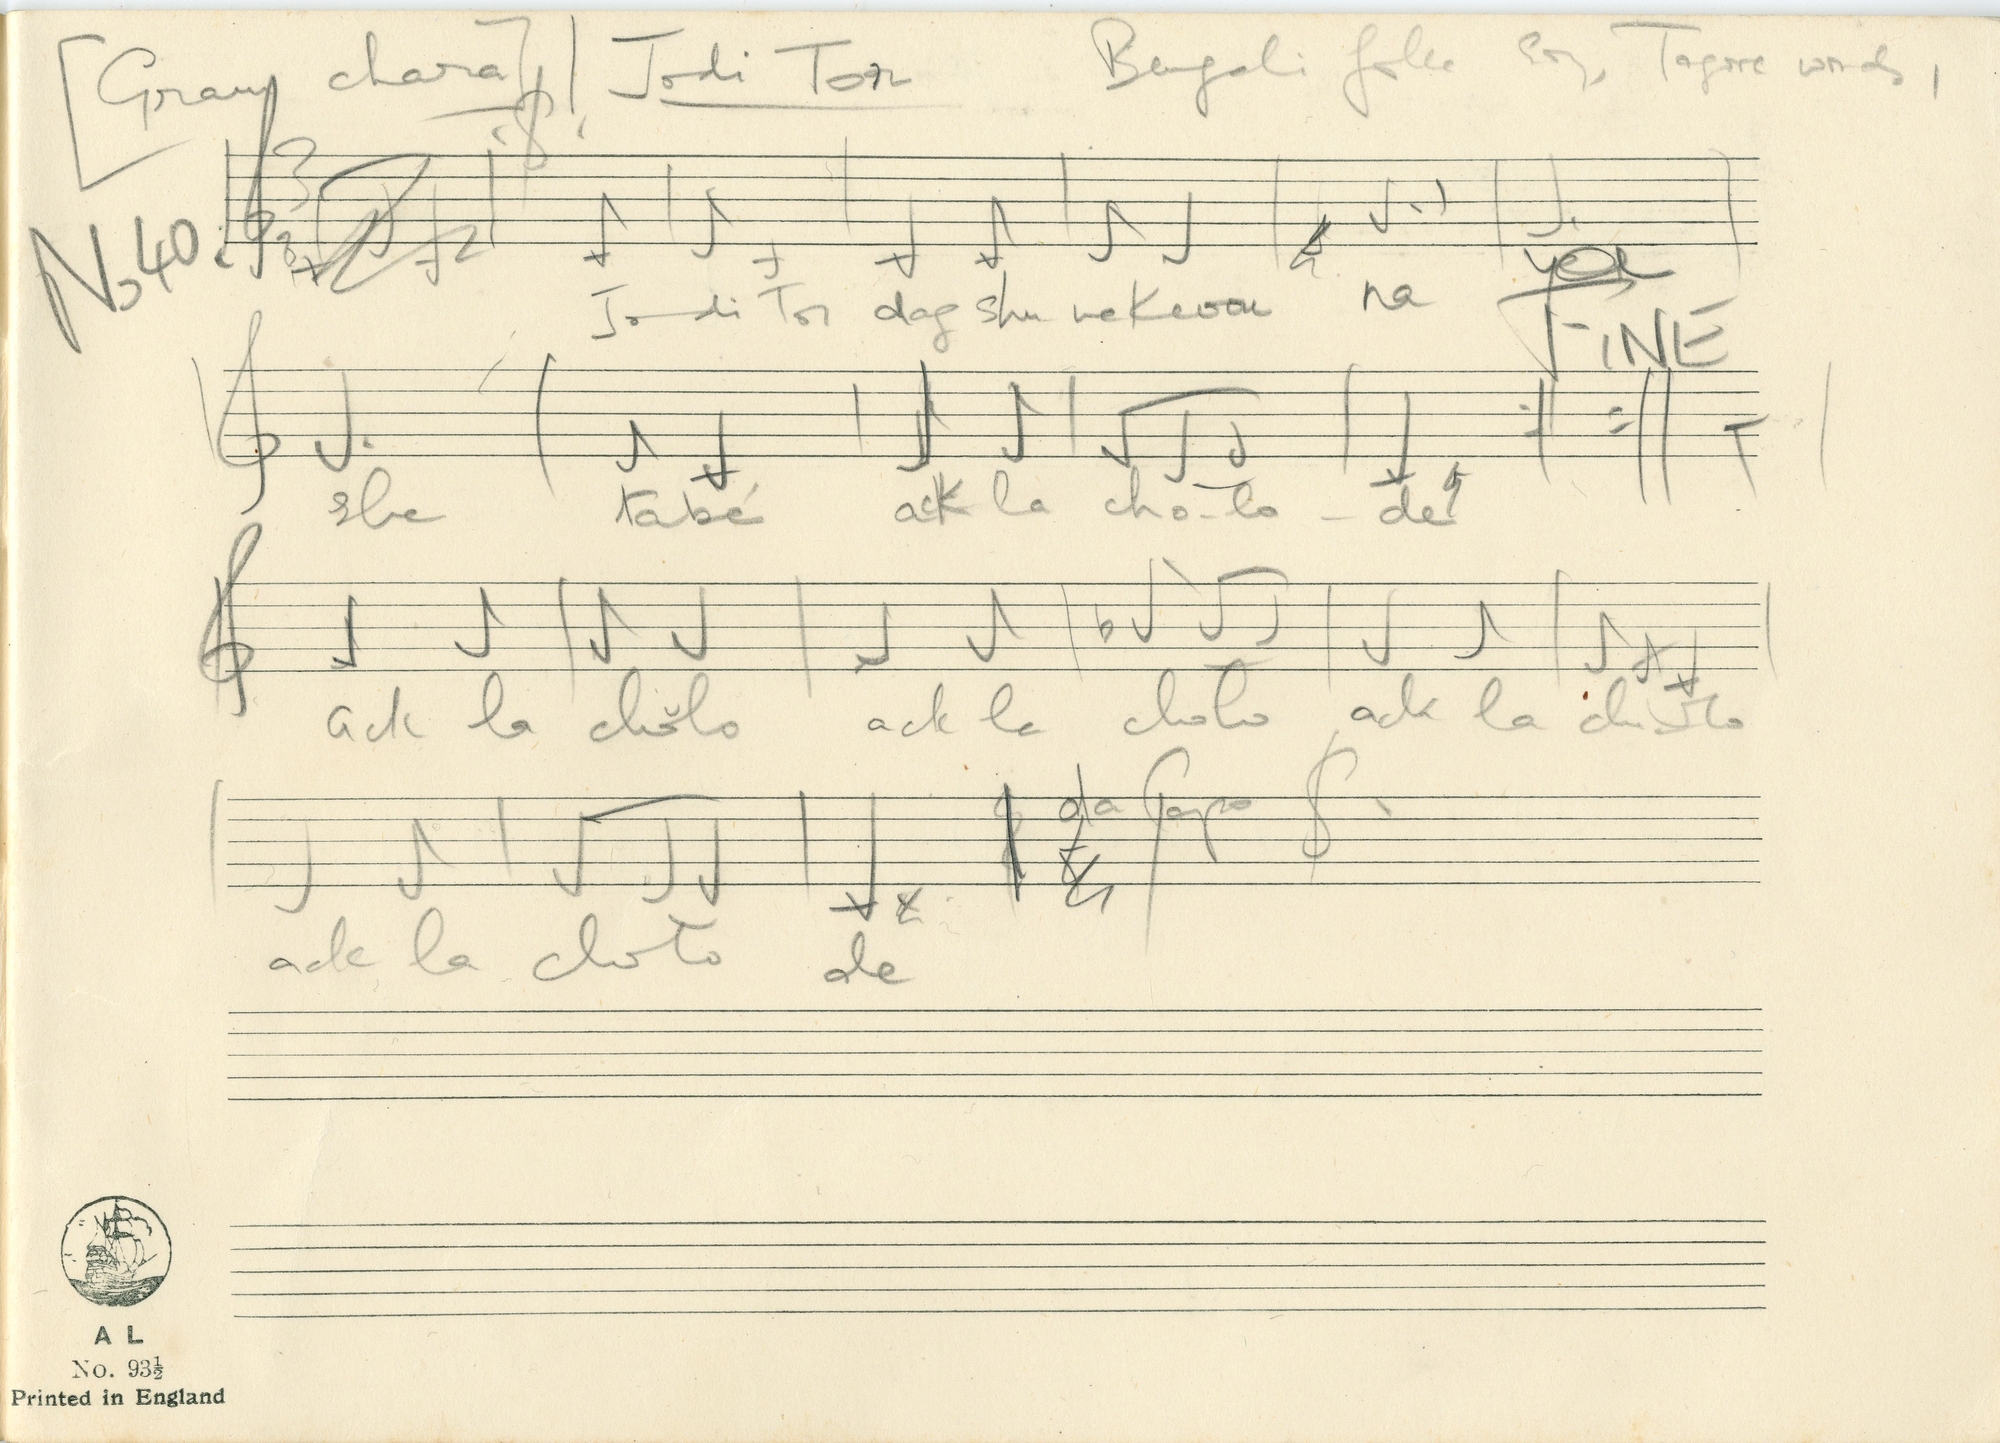 [Gram chara] Jodi Tor Bengali folk song, Tagore words,
No 40.
Jo di Tor dag shu ne Keoou na
FINE
she tabé ack la cho-lo - de
ack la cholo ack la cholo ack la cholo
da Capo
ack la cholo de
A L
No. 93½
Printed in England